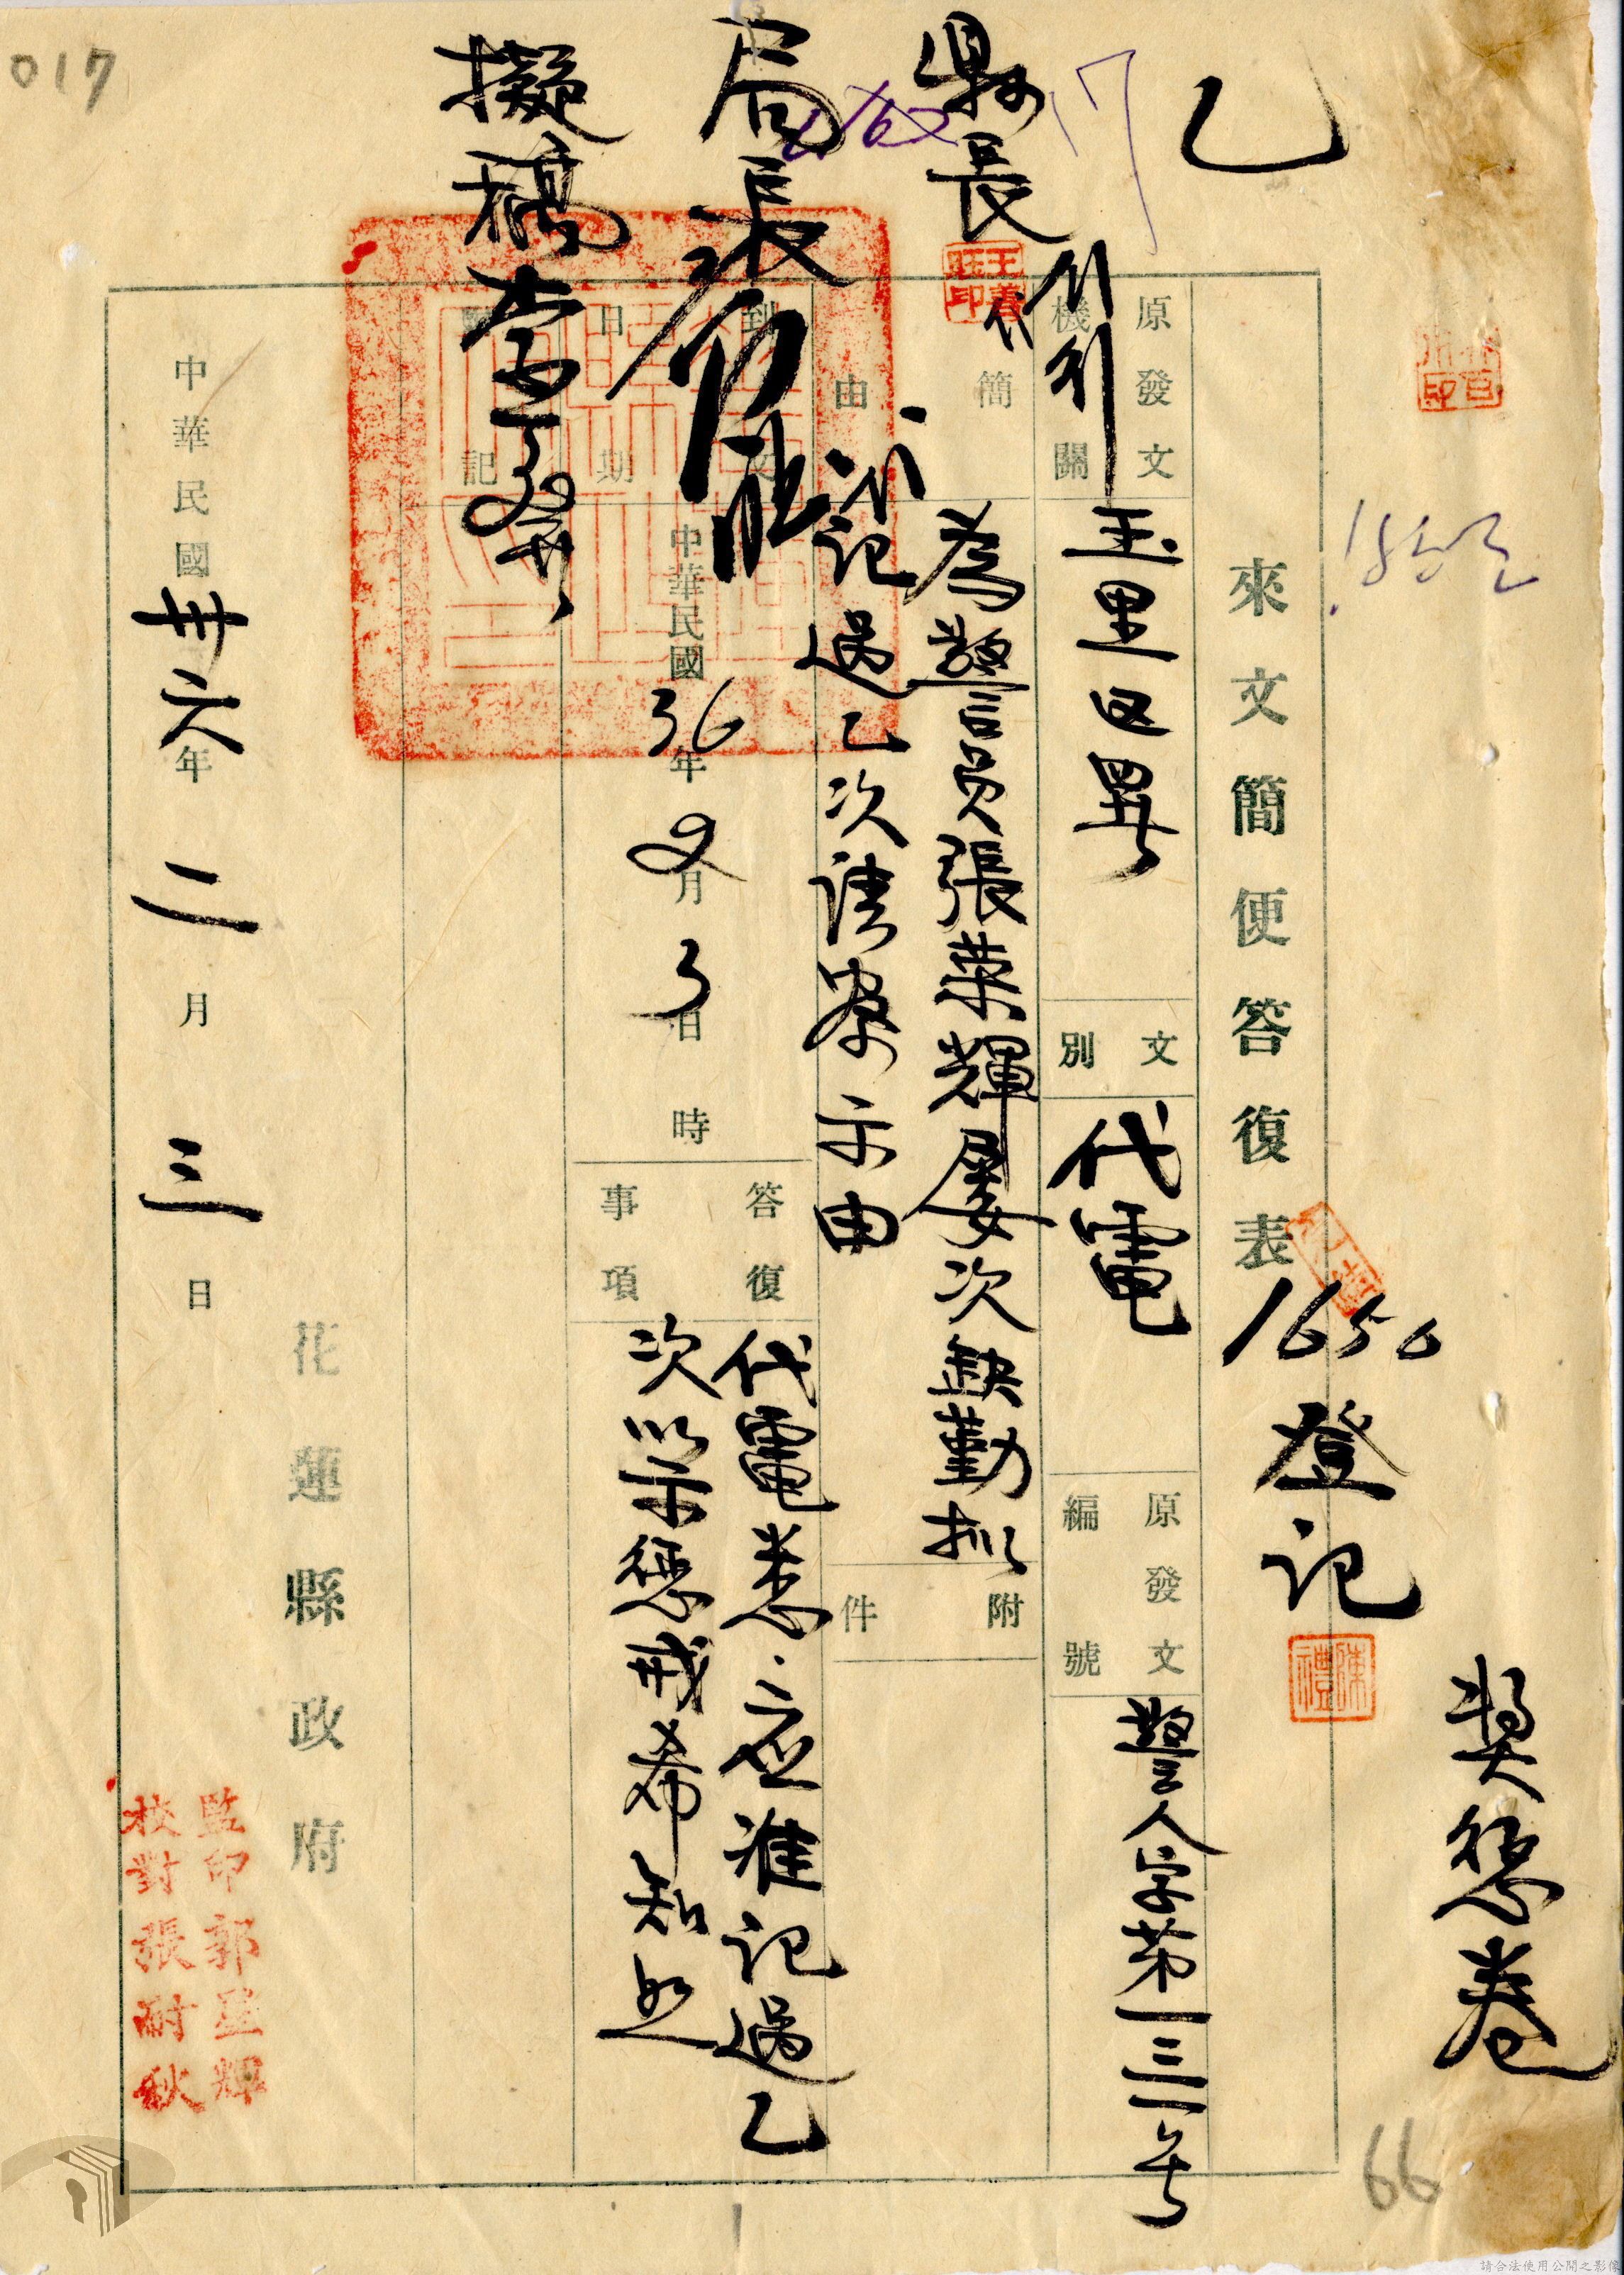 017
乙
獎懲卷
來文簡便答復表
1650
登記
陳禮
縣長
局長
擬稿
原發文機關
玉里區署
文別
代電
原發文編號
警人字第一三一号
簡由
為警員張葉輝屢次缺勤擬
記過乙次請察示由
附件
日期
中華民國36年2月3日時
答復事項
代電悉.应准记過乙
次以示懲戒希知照
附記
花蓮縣政府
中華民國卅六年二月三日
監印郭星輝
校對張耐秋
66
請合法使用公開之影像